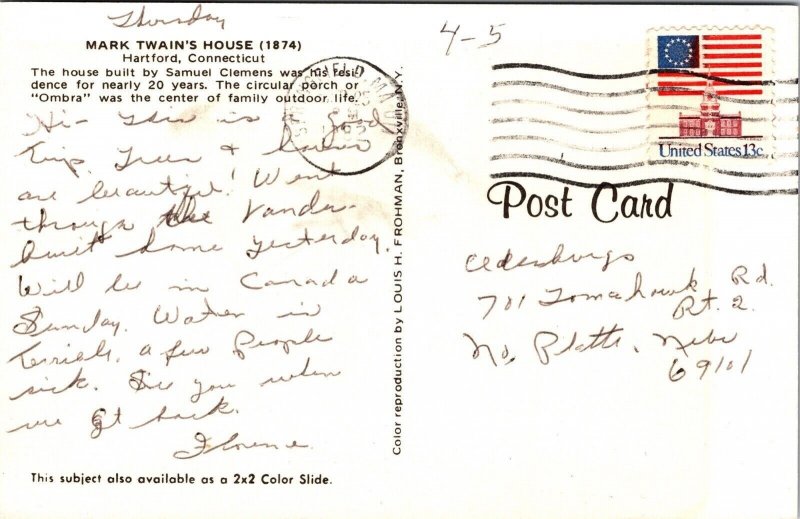 Thursday
4-5
MARK TWAIN'S HOUSE (1874)
Hartford, Connecticut
The house built by Samuel Clemens was his resi-
dence for nearly 20 years. The circular porch or
"Ombra" was the center of family outdoor life.
Hi - This is a good
trip. Trees &
are beautiful! Went
through the Vander-
built home yesterday.
Will be in Canada
Sunday. Water is
terrible, a few people
sick. See you when
we get back.
Florence
This subject also available as a 2x2 Color Slide.
Color reproduction by LOUIS H. FROHMAN, Bronxville, N.Y.
SPRINGFIELD MA
United States 13c
Post Card
701 Tomahawk Rd.
Rt. 2.
No. Platte, Nebr
69101